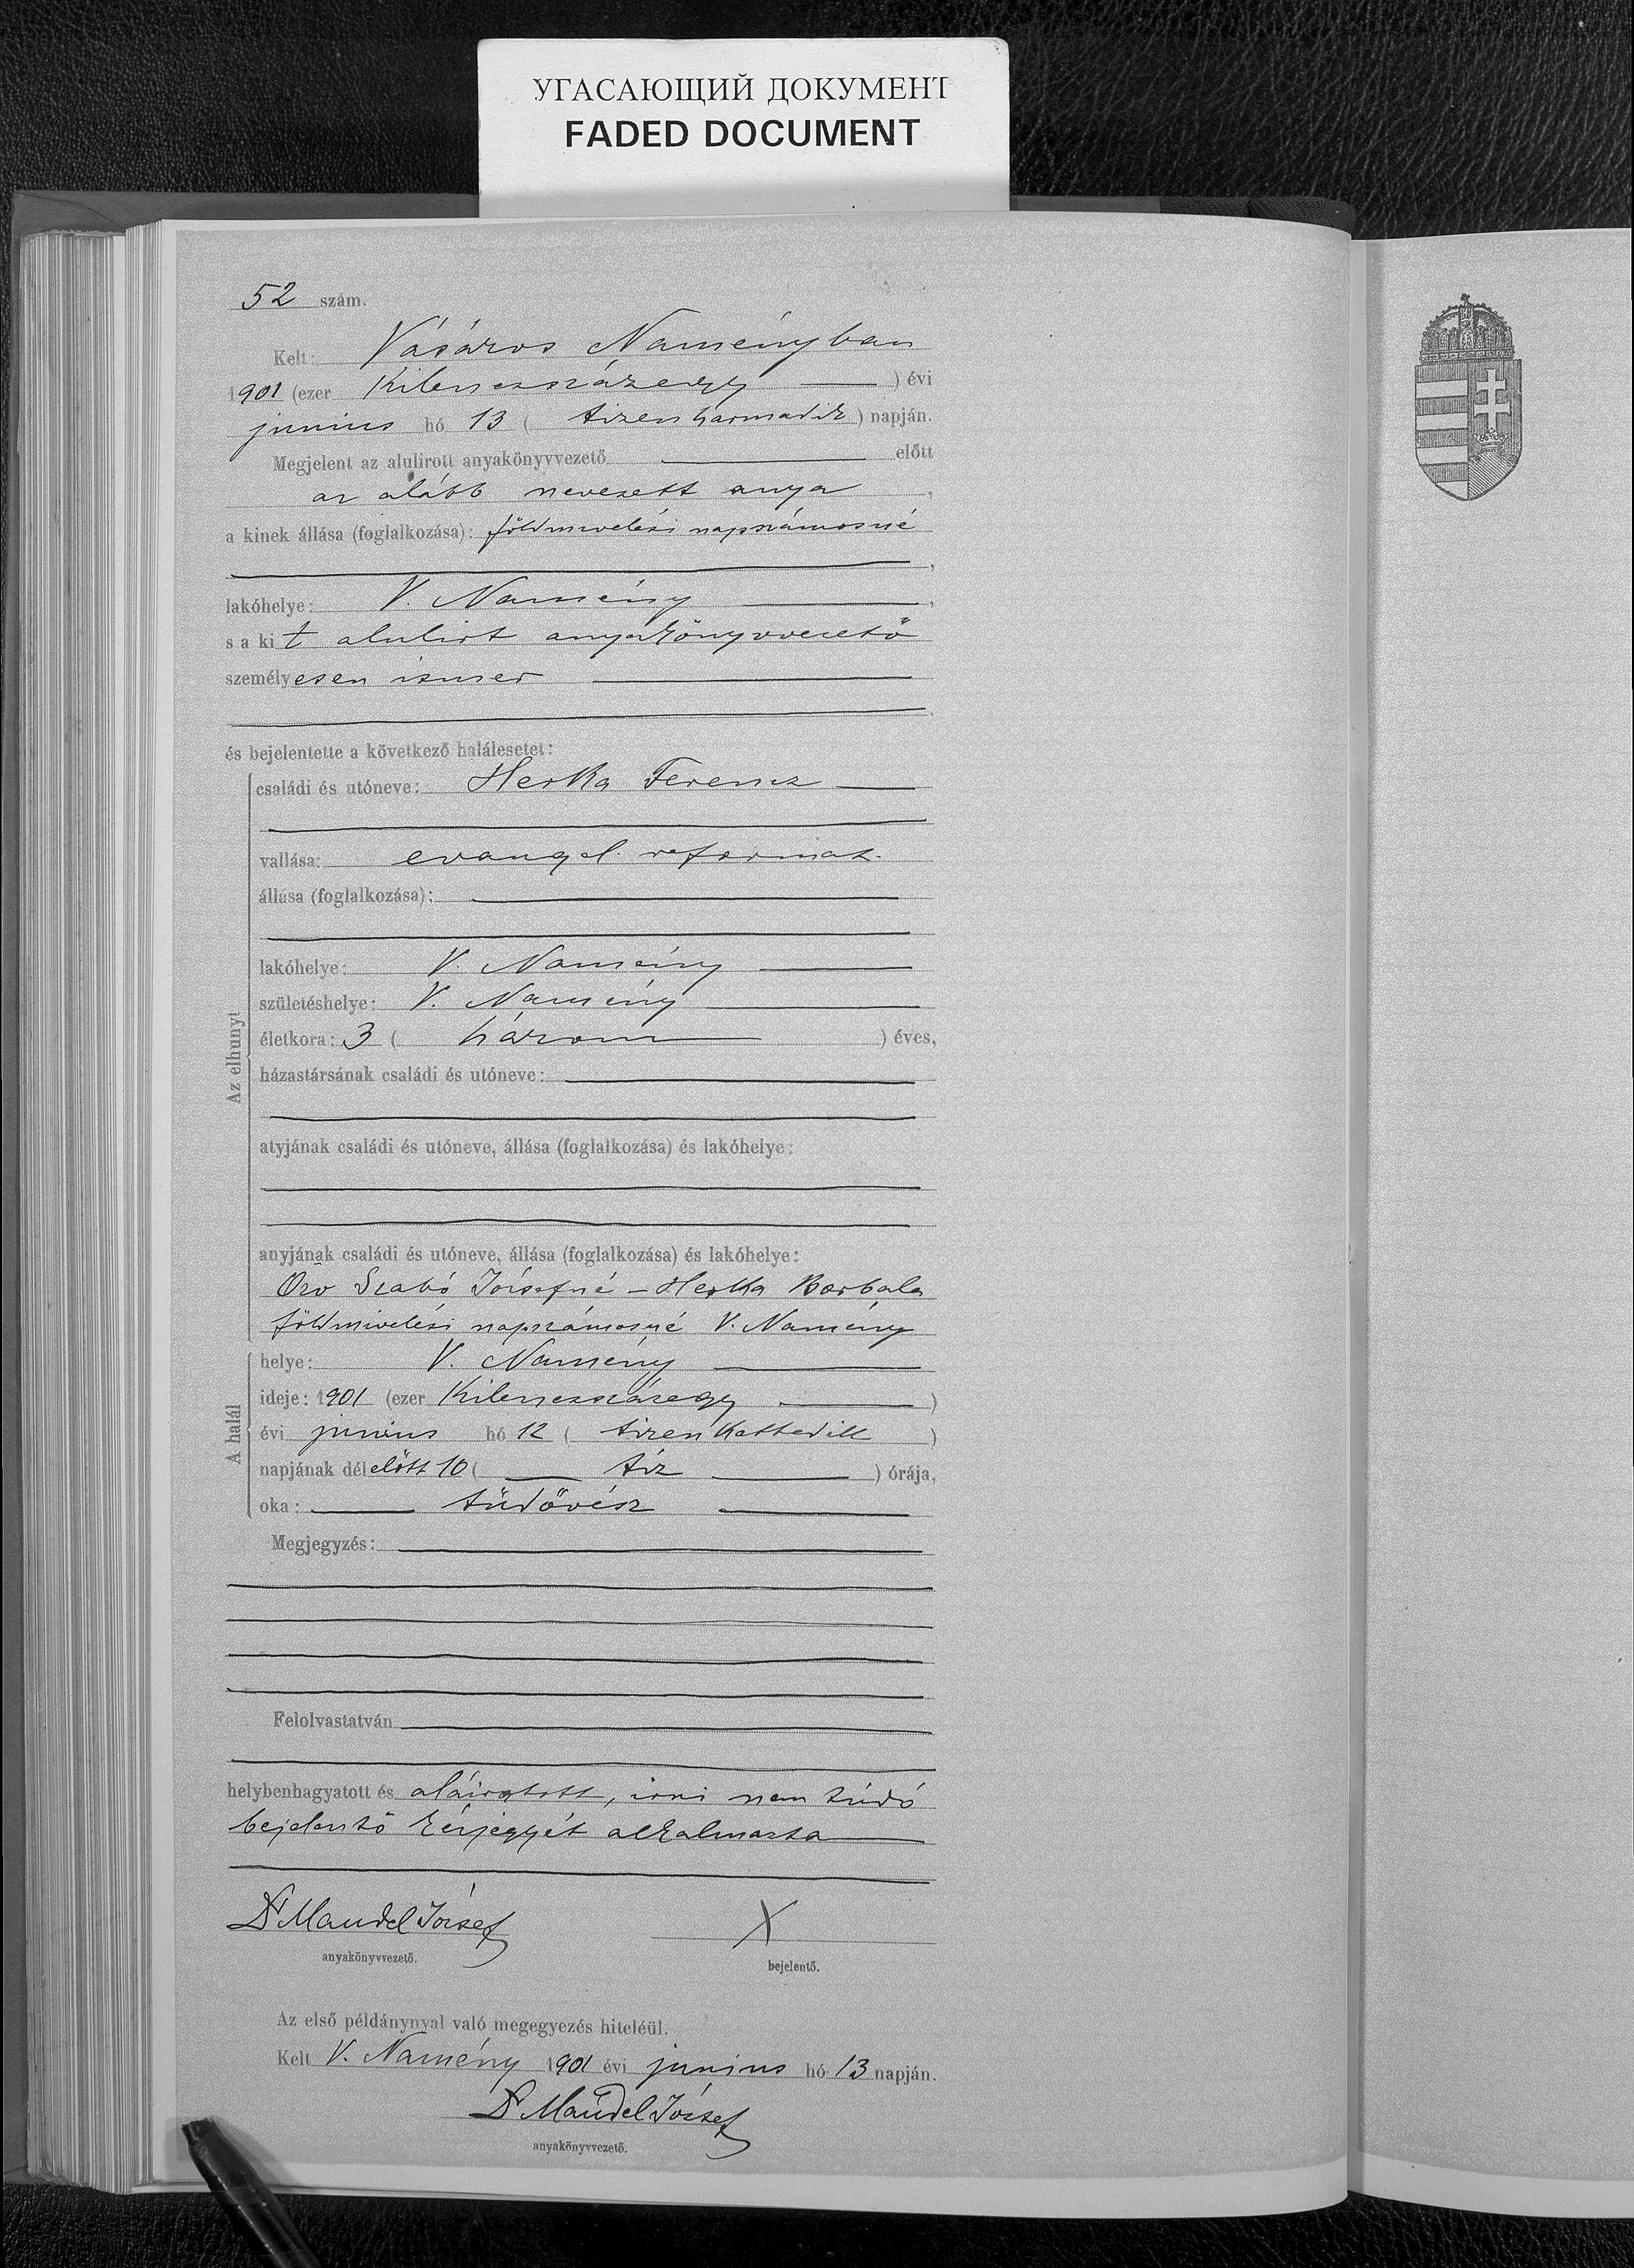 УГАСАЮЩИЙ ДОКУМЕНТ
FADED DOCUMENT
52 szám.
Kelt: Vásáros Naményban
1901 (ezer Kilenczszázegy ) évi
junius hó 13 ( tizenharmadik ) napján.
Megjelent az alulirott anyakönyvvezető előtt
az alább nevezett anya ,
a kinek állása (foglalkozása): földmivelési napszámosné
,
lakóhelye: V. Namény ,
s a kit alulirt anyakönyvvezető
személyesen ismer
és bejelentette a következő halálesetet:
Az elhunyt
családi és utóneve: Herka Ferencz
vallása: evangel. reformat.
állása (foglalkozása):
lakóhelye: V. Namény
születéshelye: V. Namény
életkora: 3 ( három ) éves,
házastársának családi és utóneve:
atyjának családi és utóneve, állása (foglalkozása) és lakóhelye:
anyjának családi és utóneve, állása (foglalkozása) és lakóhelye:
Özv Szabó Józsefné - Herka Borbála
földmivelési napszámosné V. Namény
A halál
helye: V. Namény
ideje: 1901 (ezer Kilenczszázegy )
évi junius hó 12 ( tizenkettedik )
napjának délelött 10 ( tiz ) órája,
oka: tüdővész
Megjegyzés:
Felolvastatván
helybenhagyatott és aláiratott, irni nem túdó
bejelentő kézjegyét alkalmazta
Dr Mandel József X
anyakönyvvezető. bejelentő.
Az első példánynyal való megegyezés hiteléül.
Kelt V. Namény 1901 évi junius hó 13 napján.
Dr Mandel József
anyakönyvvezető.